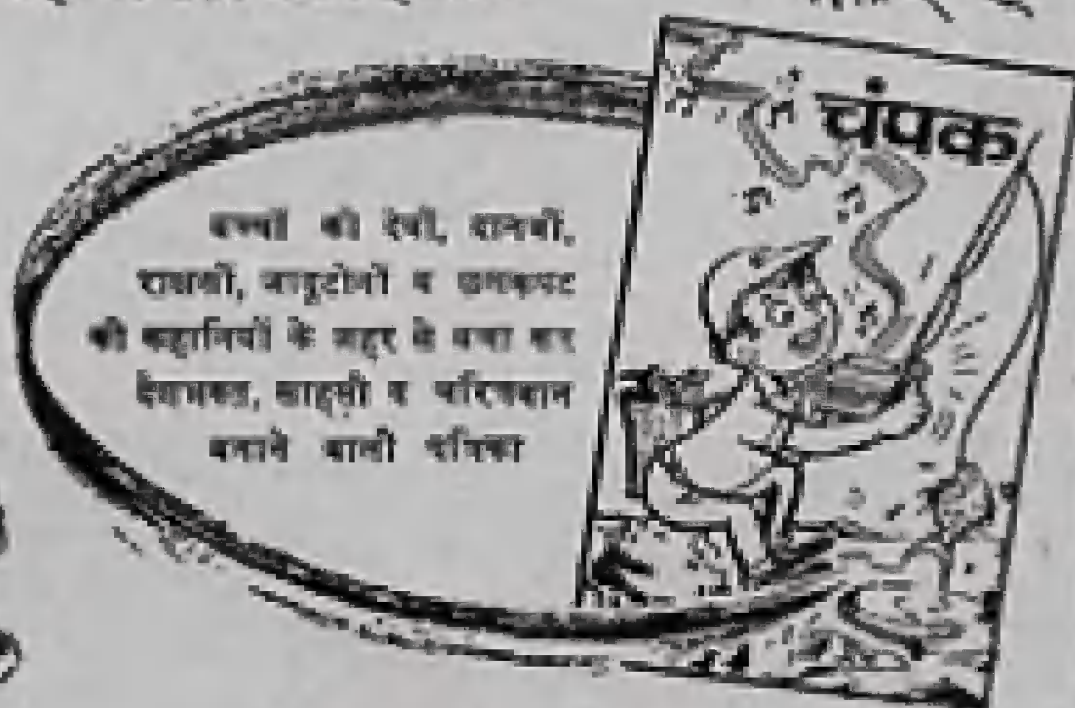 चंपक
बच्चों को देवों, दानवों,
राक्षसों, जादूटोनों व छलकपट
की कहानियों के जहर से बचा कर
देशभक्त, साहसी व चरित्रवान
बनाने वाली पत्रिका